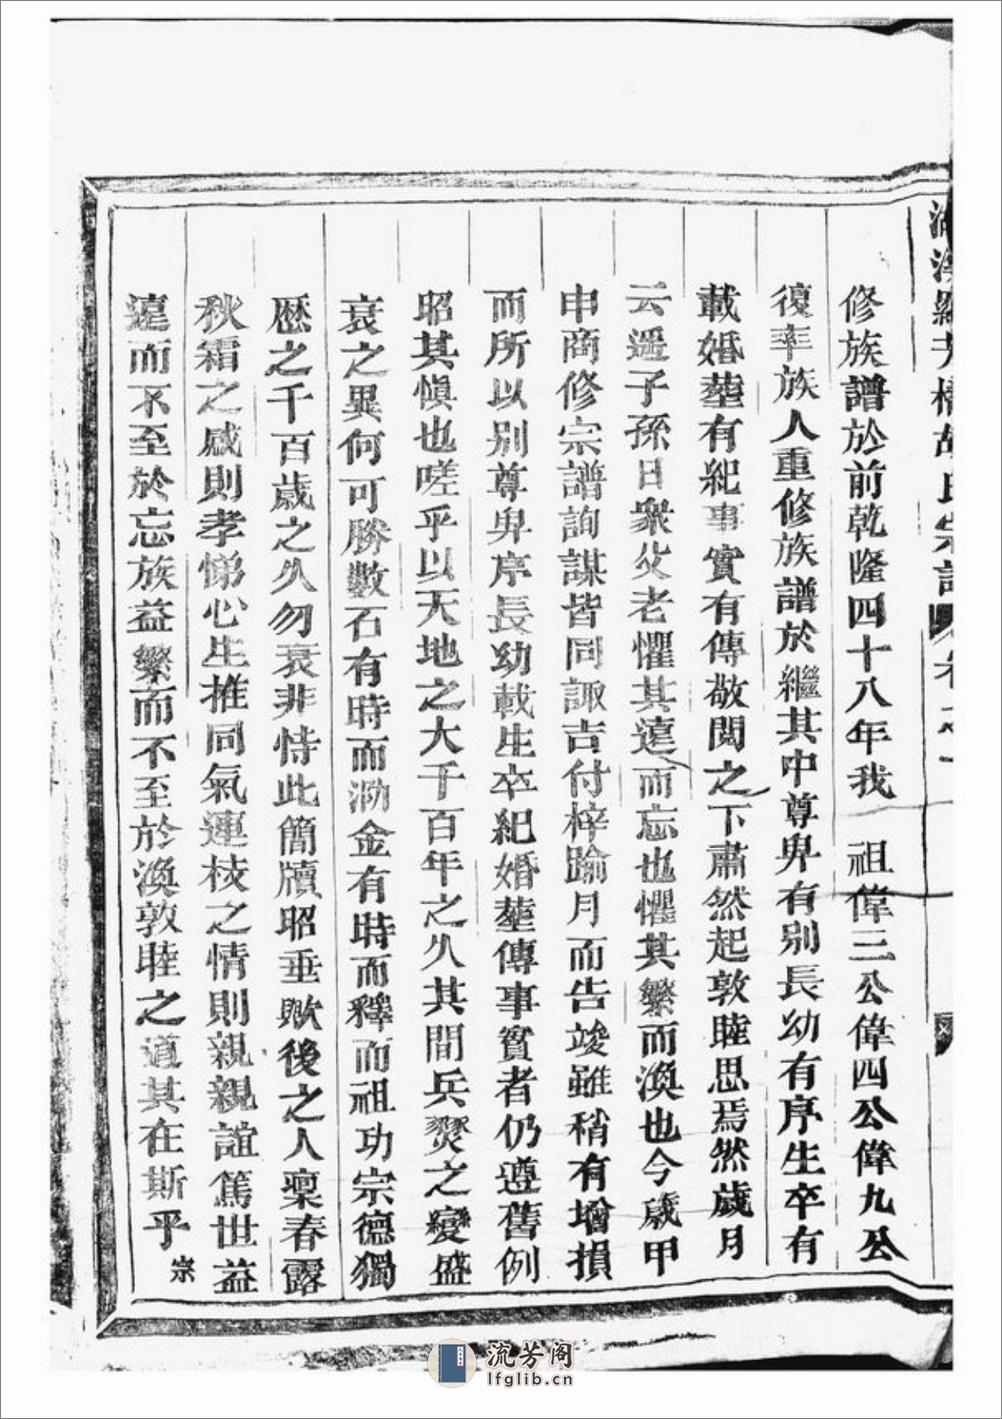 胡氏宗譜 卷之一
修族譜於前乾隆四十八年我 祖偉三公偉四公偉九公
復率族人重修族譜於繼其中尊卑有別長幼有序生卒有
載婚塟有紀事實有傳敬閱之下肅然起敦睦思焉然歲月
云遥子孫日衆父老懼其遠而忘也懼其繁而渙也今歲甲
申商修宗譜詢謀皆同諏吉付梓踰月而告竣雖稍有增損
而所以別尊卑序長幼載生卒紀婚塟傳事實者仍遵舊例
昭其愼也嗟乎以天地之大千百年之久其間兵燹之變盛
衰之異何可勝數石有時而泐金有時而釋而祖功宗德獨
歷之千百歲之久勿衰非恃此簡牘昭垂歟後之人稟春露
秋霜之感則孝悌心生推同氣連枝之情則親親誼篤世益
遠而不至於忘族益繁而不至於渙敦睦之道其在斯乎 宗
流芳阁
lfglib.cn